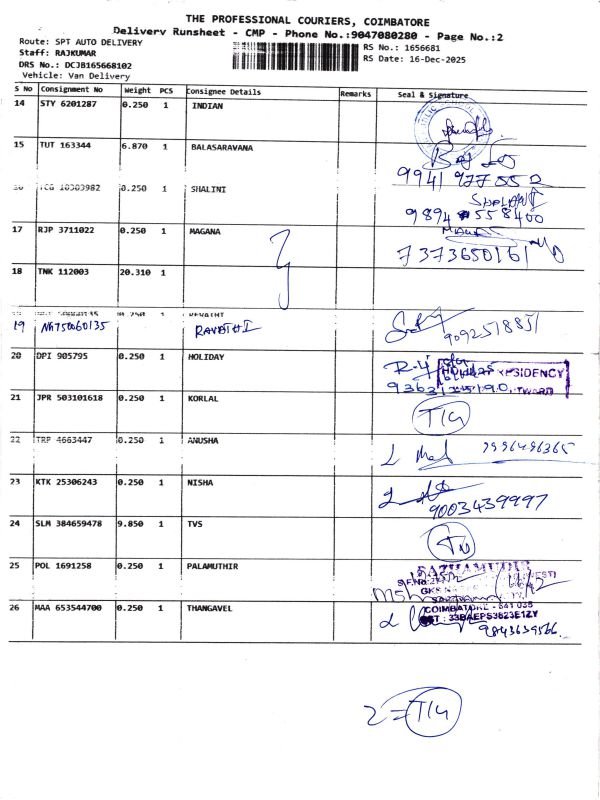 THE PROFESSIONAL COURIERS, COIMBATORE
Delivery Runsheet - CMP - Phone No.:9047080280 - Page No.:2
Route: SPT AUTO DELIVERY
Staff: RAJKUMAR
DRS No.: DCJB165668102
Vehicle: Van Delivery
RS No.: 1656681
RS Date: 16-Dec-2025
S No Consignment No Weight PCS Consignee Details Remarks Seal & Signature
14 STY 6201287 0.250 1 INDIAN
15 TUT 163344 6.870 1 BALASARAVANA
9941 977 55 0
0.250 1 SHALINI
SHALINI
9894 558400
17 RJP 3711022 0.250 1 MAGANA
7373650161
18 TNK 112003 20.310 1
0.250 1 REVATHI
19 RAVATHI
9092518851
20 DPI 905795 0.250 1 HOLIDAY
21 JPR 503101618 0.250 1 KORLAL
22 TRP 4663447 0.250 1 ANUSHA
9996496365
23 KTK 25306243 0.250 1 NISHA
9003439997
24 SLM 384659478 9.850 1 TVS
25 POL 1691258 0.250 1 PALAMUTHIR
COIMBATORE - 641 035
26 MAA 653544700 0.250 1 THANGAVEL
9843639566